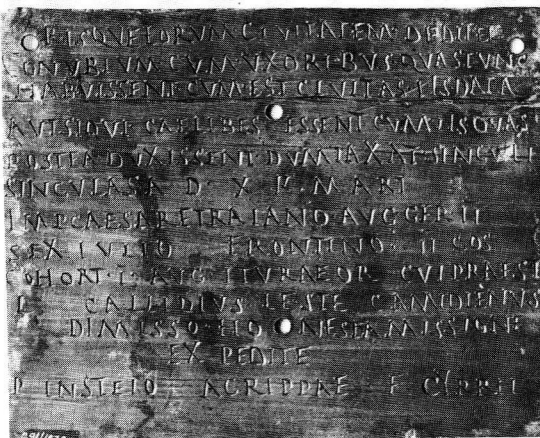 ORISQVE EORVM CIVITATEM DEDIT ET
CONVBIVM CVM VXORIBVS QVAS TVNC
HABVISSENT CVM EST CIVITAS IIS DATA
AVT SIQVI CAELIBES ESSENT CVM IIS QVAS
POSTEA DVXISSENT DVMTAXAT SINGVLI
SINGVLAS A D · X · K · MART
IMP CAESARE TRAIANO AVG GER II
SEX IVLIO FRONTINO · II COS
COHORT · I · AVG ITVRAEOR CVI PRAEST
L CALLIDIVS L F STE CAMIDIENVS
DIMISSO HONESTA MISSIONE
EX PEDITE
P INSTEIO AGRIPPAE F CYRRH